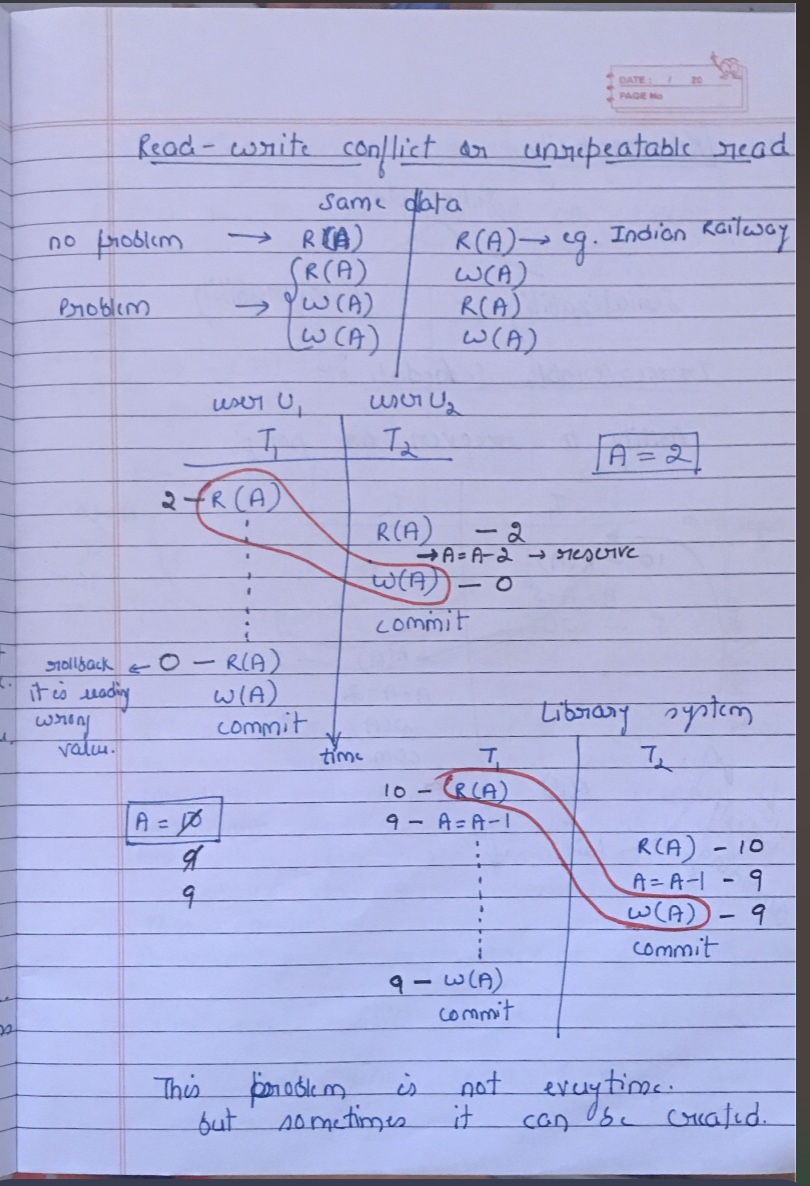 DATE: / 20
PAGE No
Read-write conflict or unrepeatable read
same data
no problem → R(A) R(A) → eg. Indian Railway
R(A) W(A)
Problem → W(A) R(A)
W(A) W(A)
user U₁ user U₂
T₁ T₂
A = 2
2 - R(A)
R(A) - 2
→ A=A-2 → reserve
W(A) - 0
commit
rollback ← 0 - R(A)
it is reading W(A)
wrong commit
value. time
Library system
T₁ T₂
10 - R(A)
A = 10
9 - A=A-1
9
R(A) - 10
A=A-1 - 9
9
W(A) - 9
commit
9 - W(A)
commit
This problem is not everytime.
but sometimes it can be created.